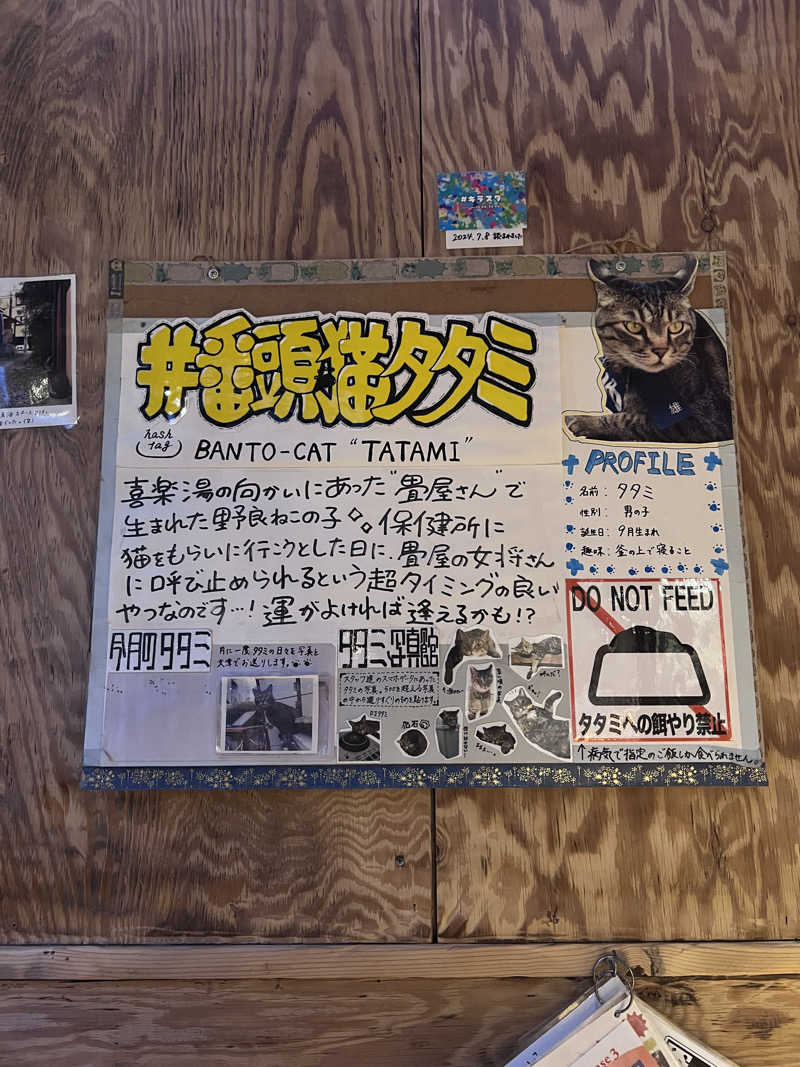 #キラスタ
2024.7.8
#番頭猫タタミ
hash
tag
BANTO-CAT "TATAMI"
喜楽湯の向かいにあった"畳屋さん"で
生まれた野良ねこの子。保健所に
猫をもらいに行こうとした日に、畳屋の女将さん
に呼び止められるという超タイミングの良い
やつなのです…!運がよければ逢えるかも!?
PROFILE
名前: タタミ
性別: 男の子
誕生日: 9月生まれ
趣味: 釜の上で寝ること
DO NOT FEED
タタミへの餌やり禁止
↑病気で指定のご飯しか食べられません。
今月のタタミ
月に一度タタミの日々を写真と
文章でお送りします。
タタミ写真館
スタッフ達のスマホデータにあった
タタミの写真。500を超える写真
の中から選りすぐりの
化石
雄